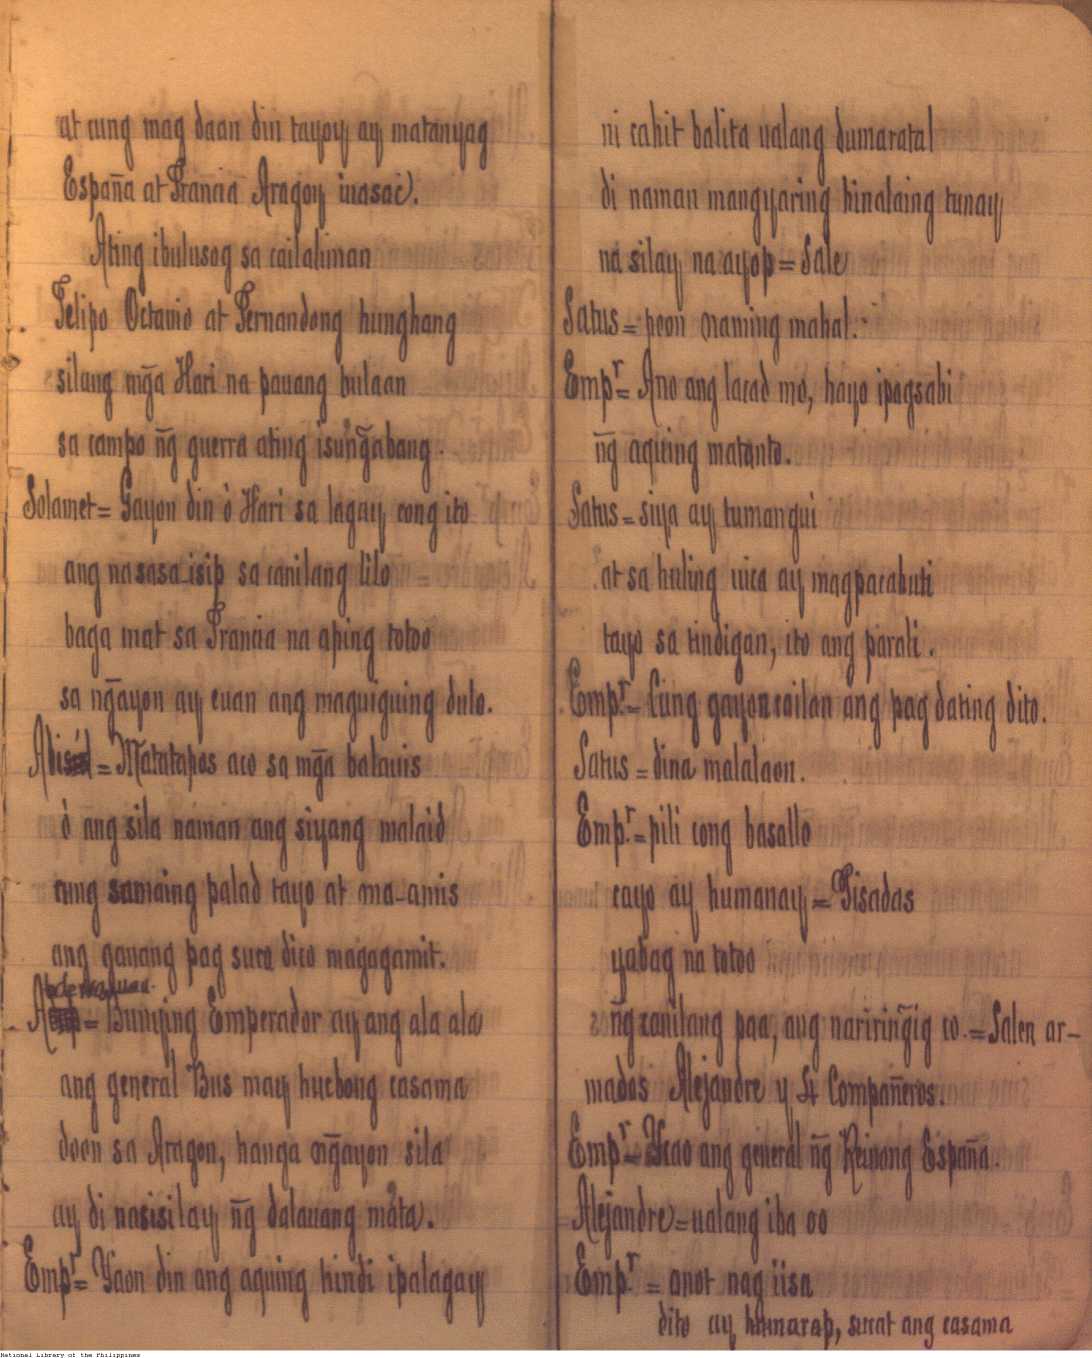 at cung mag daan din tayoy ay matanyag
España at Francia Aragoy uasac.
Ating ibulusog sa cailaliman
Felipo Octavio at Fernandong hunghang
silang mḡa Hari na pauang bulaan
sa campo n̄g guerra ating isun̄gabang.
Solamet = Gayon din ò Hari sa lagay cong ito
ang nasasa isip sa canilang lilo
baga mat sa Francia na aping totoo
sa n̄gayon ay cuan ang maguiguing dulo.
= Matatapos aco sa mḡa batauis
ò ang sila naman ang siyang malaid
cung samaing palad tayo at ma-amis
ang ganang pag suco dico magagamit.
= Bunying Emperador ay ang ala ala
ang general Bus may hucbong casama
doon sa Aragon, hanga n̄gayon sila
ay di nasisilay n̄g dalauang mata.
Empr = Yaon din ang aquing hindi ipalagay
ni cahit balita ualang dumaratal
di naman mangyaring hinalaing tunay
na silay na ayop = Sale
Satus = poon naming mahal.
Empr = Ano ang lacad mo, hayo ipagsabi
n̄g aquing matanto.
Satus = siya ay tumangui
at sa huling uica ay magpacabuti
tayo sa tindigan, ito ang parali.
Empr. = Cung gayon cailan ang pag dating dito.
Satus = dina malalaon.
Empr. = pili cong basallo
cayo ay humanay = Pisadas
yabag na totoo
n̄g canilang paa, ang naririn̄gig co. = Salen ar-
mados Alejandre y 4 Compañeros.
Empr = Ycao ang general n̄g Reinong España.
Alejandre = ualang iba oo
Empr. = anot nag iisa
dito ay humarap, sucat ang casama
National Library of the Philippines